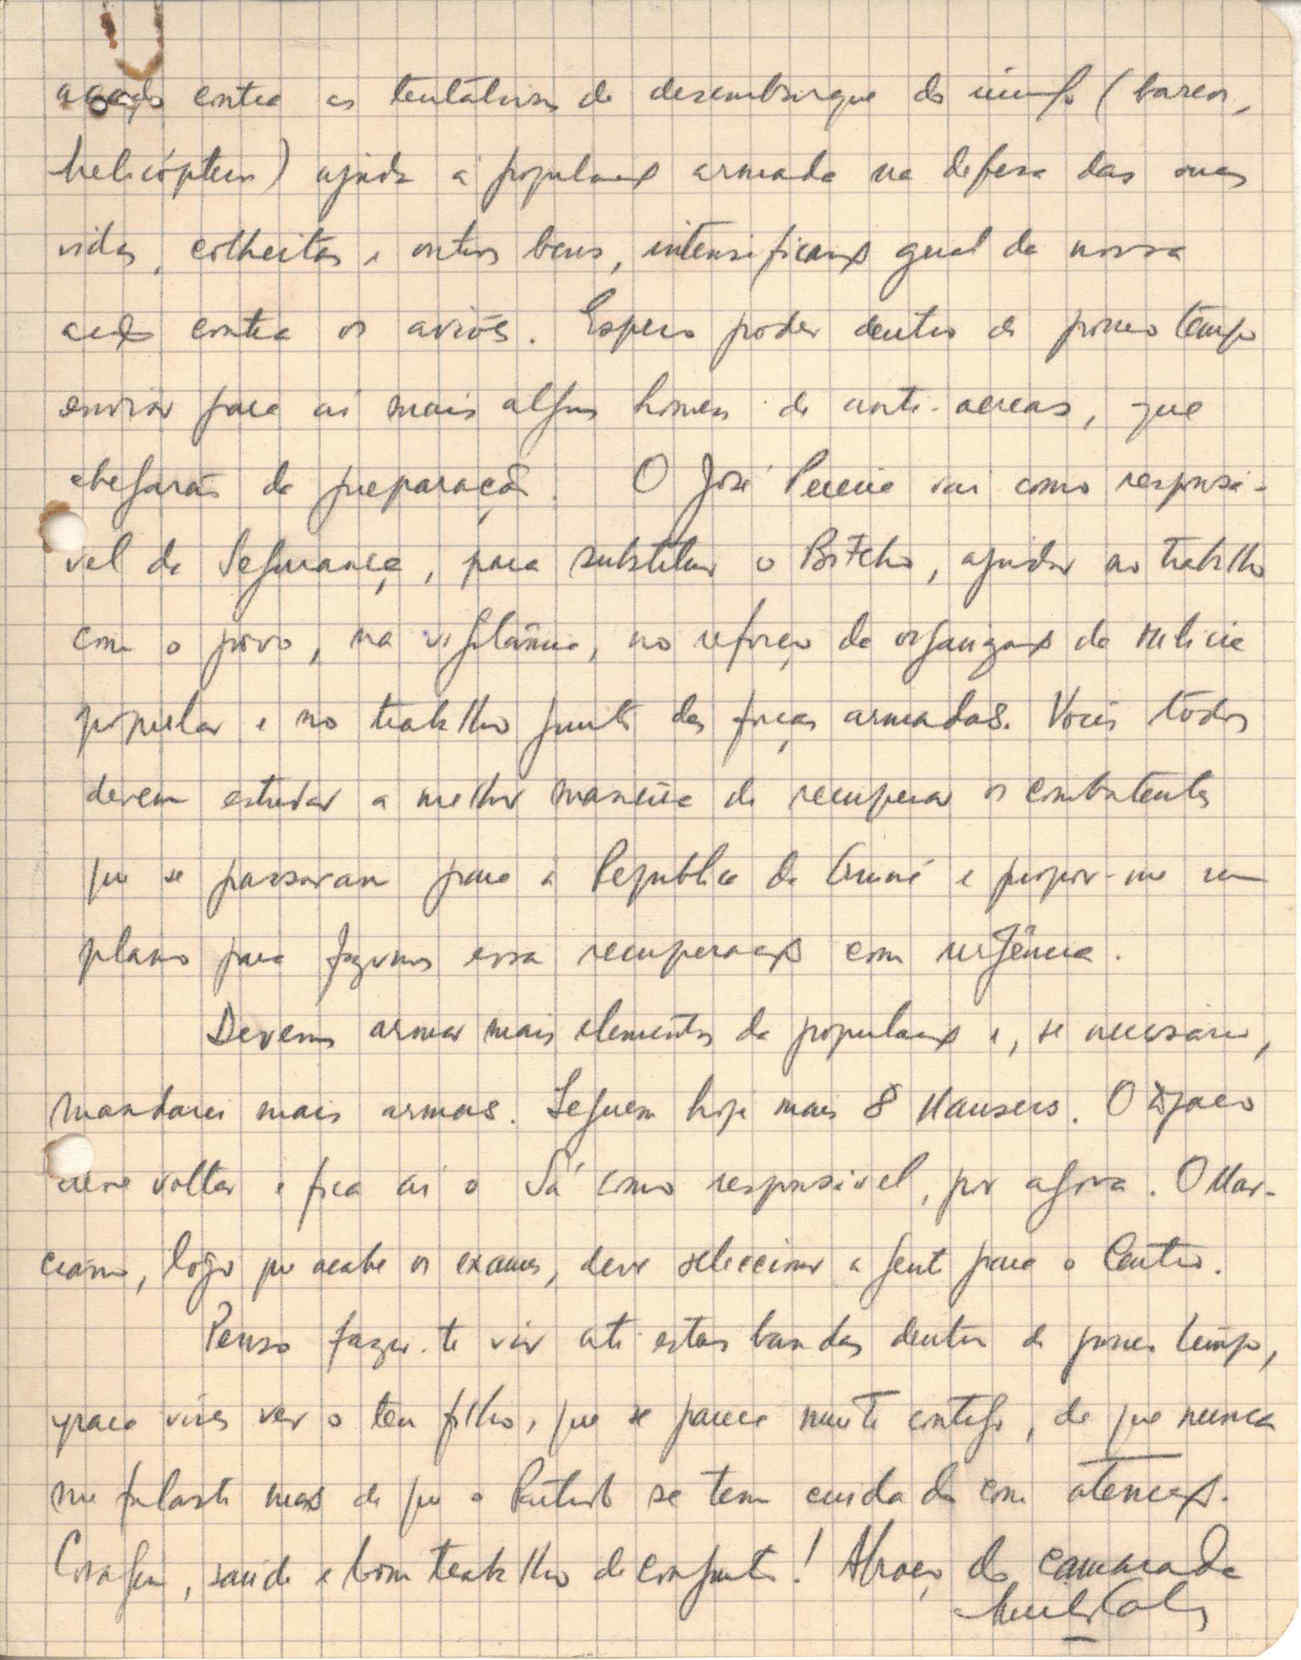 acção contra as tentativas de desembarque do inimigo (barcos,
helicópteros) ajuda à população armada na defesa das suas
vidas, colheitas e outros bens, intensificação geral da nossa
acção contra os aviões. Espero poder dentro de pouco tempo
enviar para aí mais alguns homens de anti-aéreas, que
chegarão da preparação. O José Pereira vai como responsá-
vel da Segurança, para substituir o Botcho, ajudar no trabalho
com o povo, na vigilância, no reforço da organização da milícia
popular e no trabalho junto das forças armadas. Vocês todos
devem estudar a melhor maneira de recuperar os combatentes
que se passaram para a República da Guiné e propor-me um
plano para fazermos essa recuperação com urgência.
Devemos armar mais elementos da população e, se necessário,
mandarei mais armas. Seguem hoje mais 8 Mausers. O
deve voltar e fica aí o Sá como responsável, por agora. O Mar-
ciano, logo que acabe os exames, deve seleccionar a gente para o Centro.
Penso fazer-te vir até estas bandas dentro de pouco tempo,
para vires ver o teu filho, que se parece muito contigo, de que nunca
me falaste mas de que o Partido se tem cuidado com atenção.
Coragem, saúde e bom trabalho de conjunto! Abraço do camarada